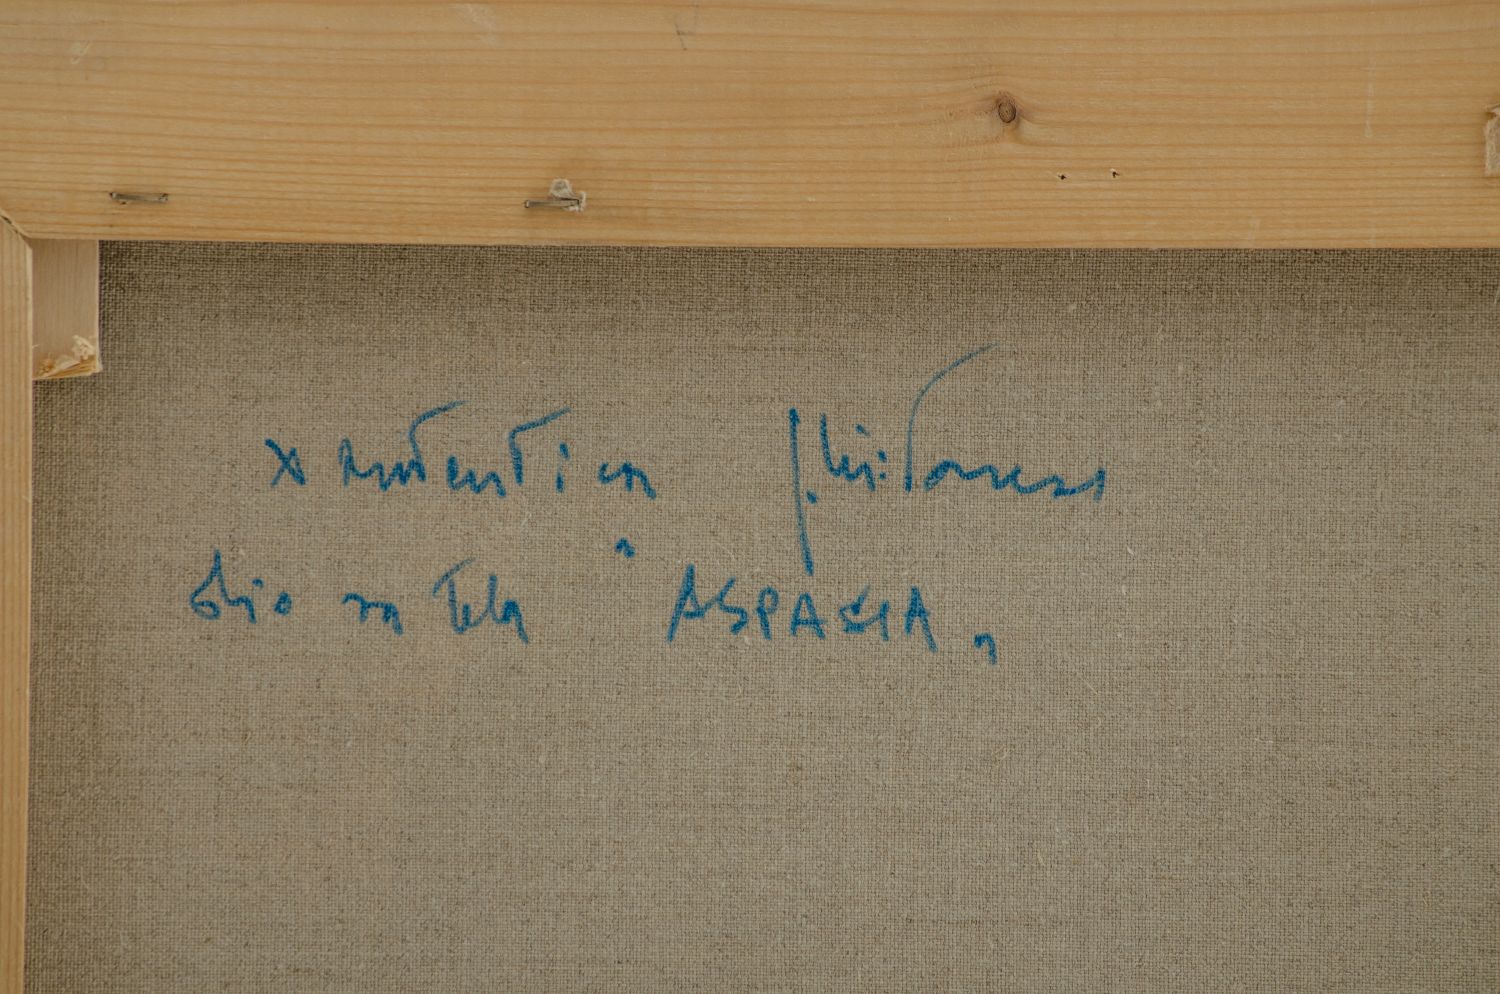 x autentica
olio su tela "ASPASIA"